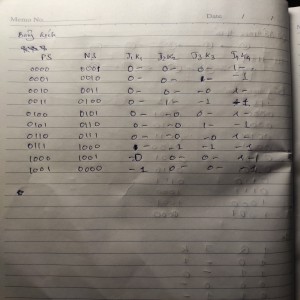 Memo No.
Date / /
PS NS J₁ K₁ J₂ K₂ J₃ K₃ J₄ K₄
0000 0001 0- 0- 0- 1-
0001 0010 0- 0- 1- -1
0010 0011 0- 0- -0 1-
0011 0100 0- 1- -1 -1
0100 0101 0- -0 0- 1-
0101 0110 0- -0 1- -1
0110 0111 0- -0 -0 1-
0111 1000 1- -1 -1 -1
1000 1001 -0 0- 0- 1-
1001 0000 -1 0- 0- -1